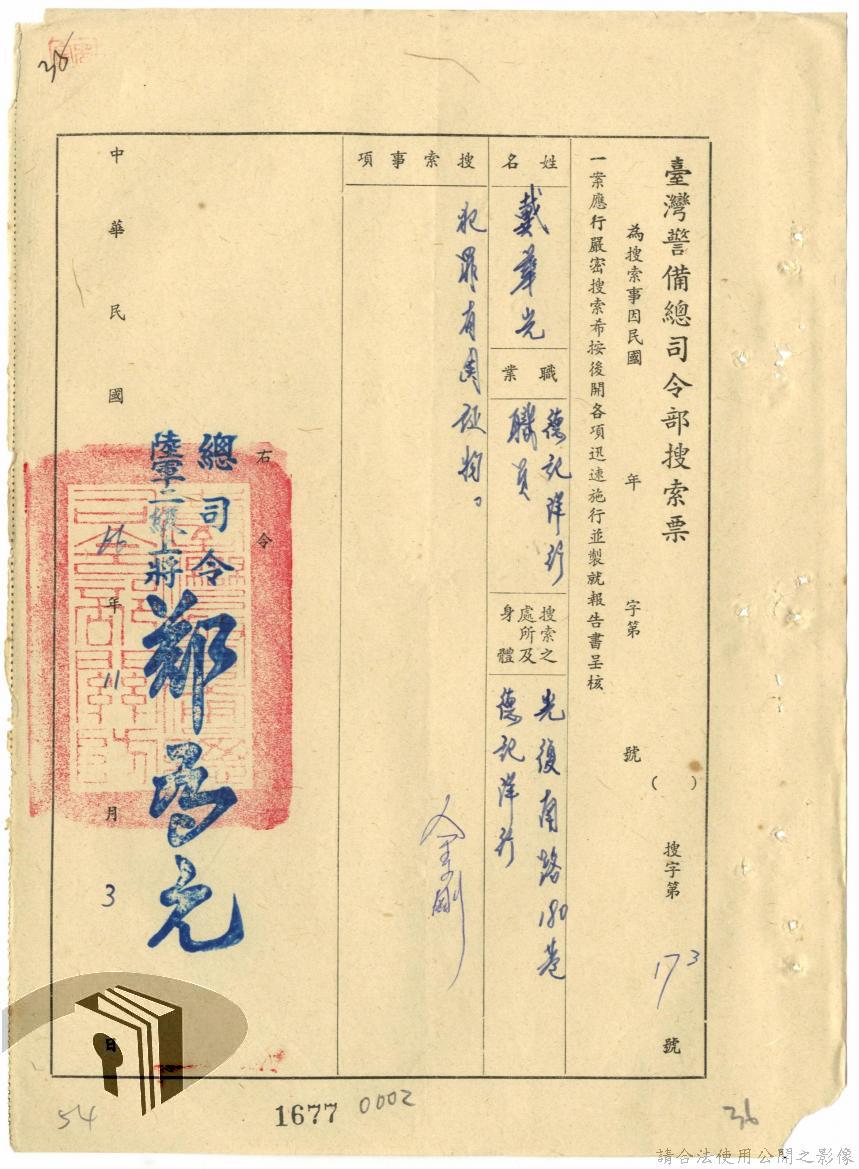 36
臺灣警備總司令部搜索票
( )
搜字第 173 號
為搜索事因民國 年 字第 號
一案應行嚴密搜索希按後開各項迅速施行並製就報告書呈核
姓名
戴華光
職業
德記洋行
職員
搜索之
處所及
身體
光復南路180巷
德記洋行
搜索事項
犯罪有關証物。
右令
總司令
陸軍二級上將
鄭為元
中華民國 66 年 11 月 3 日
54
1677 0002
36
請合法使用公開之影像